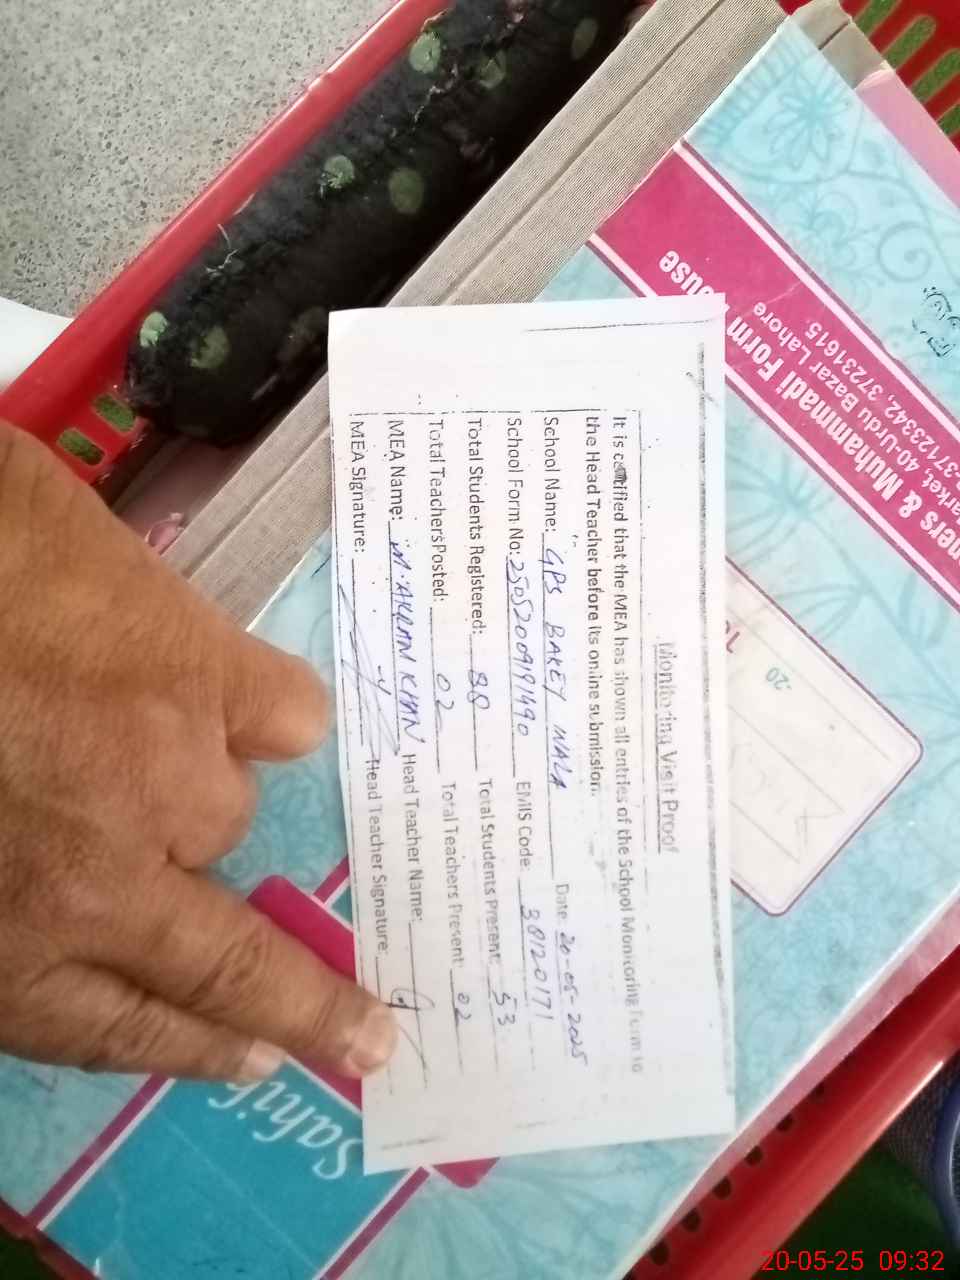 Monitoring Visit Proof
It is certified that the MEA has shown all entries of the School Monitoring Form to
the Head Teacher before its online submission.
Date: 20-05-2025
School Name: GPS BAKEY WALA
School Form No: 25052009191490 EMIS Code: 38120171
Total Students Registered: 88 Total Students Present: 53
Total Teachers Posted: 02 Total Teachers Present: 02
MEA Name: M. AKRAM KHAN Head Teacher Name:
MEA Signature: Head Teacher Signature:
ners & Muhammadi Form House
arket, 40-Urdu Bazar Lahore
37123342, 37231615
20
Sahib
20-05-25 09:32